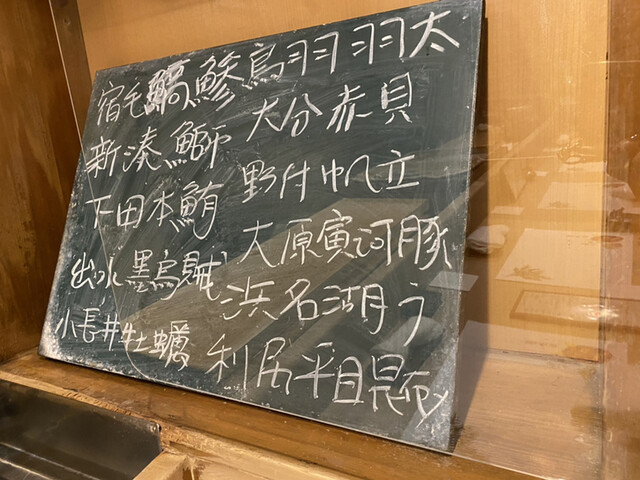 宿毛縞鯵
新湊鰤
下田本鮪
出水墨烏賊
小長井牡蠣
鳥羽羽太
大分赤貝
野付帆立
大原寅河豚
浜名湖
利尻平目昆布〆